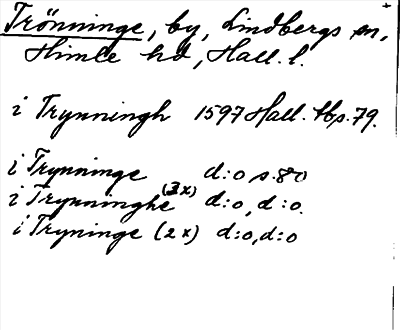 Trönninge, by, Lindbergs sn,
Himle hd, Hall. l.
i Trynningh 1597 Hall. tbs. 79.
i Trynninge d:o s. 80
i Trynninghe (3x) d:o, d:o.
i Tryninge (2x) d:o, d:o